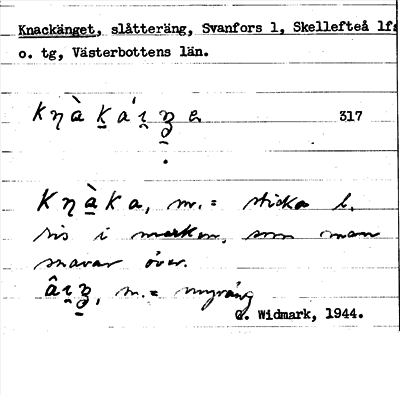 Knackänget, slåtteräng, Svanfors 1, Skellefteå lfs
o. tg, Västerbottens län.
317
m. = sticka l.
ris i marken, som man
snavar över.
m. = myräng
G. Widmark, 1944.